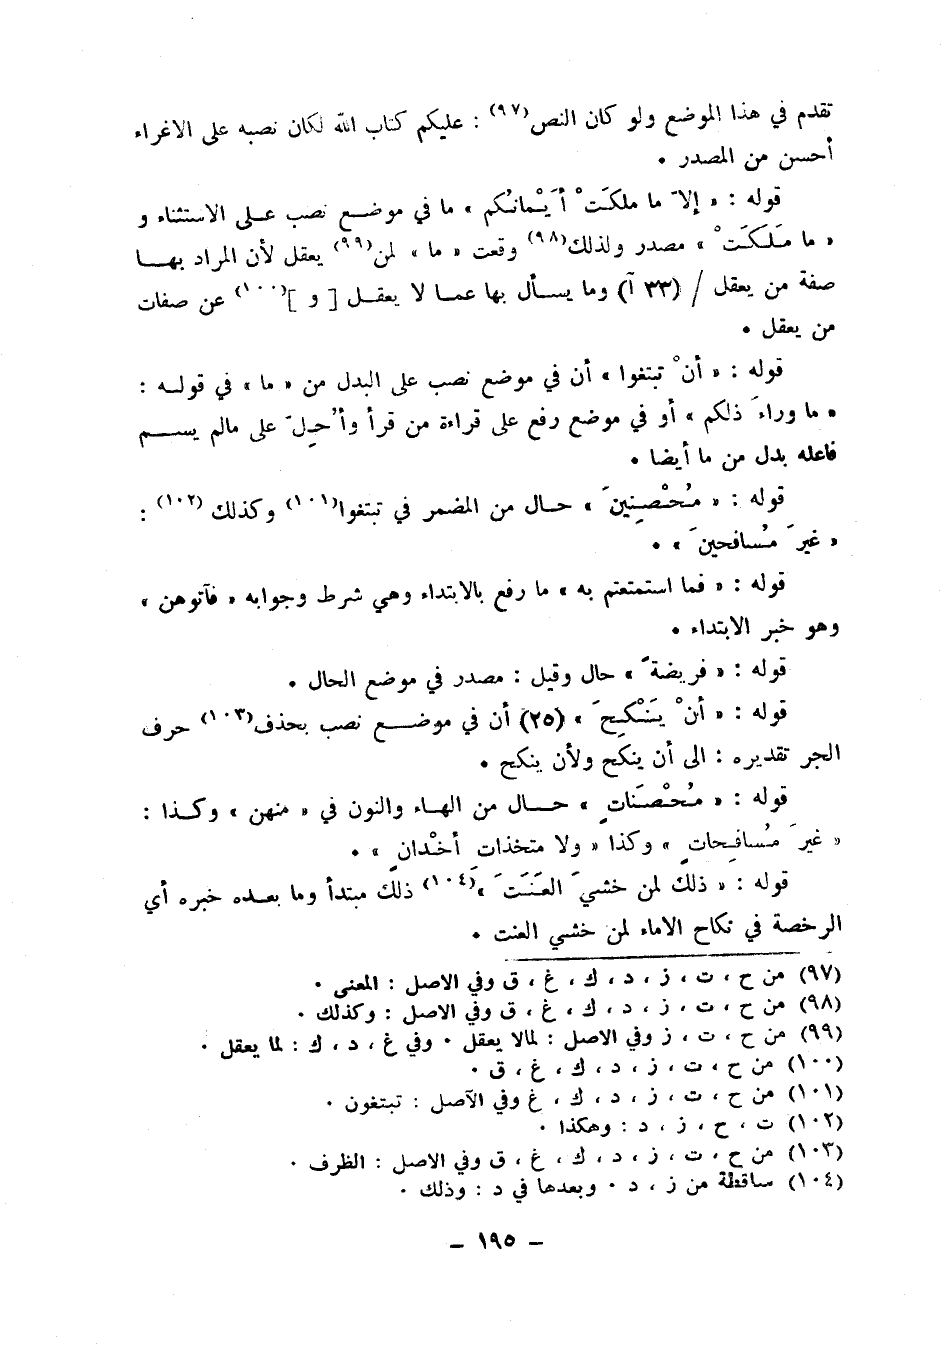 تقدم في هذا الموضع ولو كان النص(٩٧) : عليكم كتاب الله لكان نصبه على الاغراء
أحسن من المصدر •
قوله : « إلاّ ما ملكَتْ أَيْمانُكم » ما في موضع نصب على الاستثناء و
« ما مَلَكَتْ » مصدر ولذلك(٩٨) وقعت « ما » لمن(٩٩) يعقل لأن المراد بها
صفة من يعقل / (٣٣ آ) وما يسأل بها عما لا يعقل [ و ](١٠٠) عن صفات
من يعقل •
قوله : « أنْ تبتغوا » أن في موضع نصب على البدل من « ما » في قوله :
« ما وراءَ ذلكم » أو في موضع رفع على قراءة من قرأ وأُحِلّ على مالم يسم
فاعله بدل من ما أيضا •
قوله : « مُحْصِنِينَ » حال من المضمر في تبتغوا(١٠١) وكذلك (١٠٢) :
« غيرَ مُسافحينَ » •
قوله : « فما استمتعتم به » ما رفع بالابتداء وهي شرط وجوابه « فآتوهن »
وهو خبر الابتداء •
قوله : « فريضةً » حال وقيل : مصدر في موضع الحال •
قوله : « أنْ يَنْكِحَ » (٢٥) أن في موضع نصب بحذف(١٠٣) حرف
الجر تقديره : الى أن ينكح ولأن ينكح •
قوله : « مُحْصَناتٍ » حال من الهاء والنون في « منهن » وكذا :
« غيرَ مُسافِحاتٍ » وكذا « ولا متخذاتِ أخْدانٍ » •
قوله : « ذلك لمن خشيَ العَنَتَ »(١٠٤) ذلك مبتدأ وما بعده خبره أي
الرخصة في نكاح الاماء لمن خشي العنت •
(٩٧) من ح ، ت ، ز ، د ، ك ، غ ، ق وفي الاصل : المعنى •
(٩٨) من ح ، ت ، ز ، د ، ك ، غ ، ق وفي الاصل : وكذلك •
(٩٩) من ح ، ت ، ز وفي الاصل : لمالا يعقل • وفي غ ، د ، ك : لما يعقل •
(١٠٠) من ح ، ت ، ز ، د ، ك ، غ ، ق •
(١٠١) من ح ، ت ، ز ، د ، ك ، غ وفي الآصل : تبتغون •
(١٠٢) ت ، ح ، ز ، د : وهكذا •
(١٠٣) من ح ، ت ، ز ، د ، ك ، غ ، ق وفي الاصل : الظرف •
(١٠٤) ساقطة من ز ، د • وبعدها في د : وذلك •
– ١٩٥ –